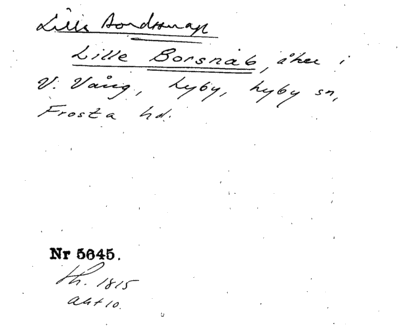 Lille
Lille Borsnab, åker i
V. Vång, Hyby, Hyby sn,
Frosta hd.
Nr 5645.
1815
akt 10.